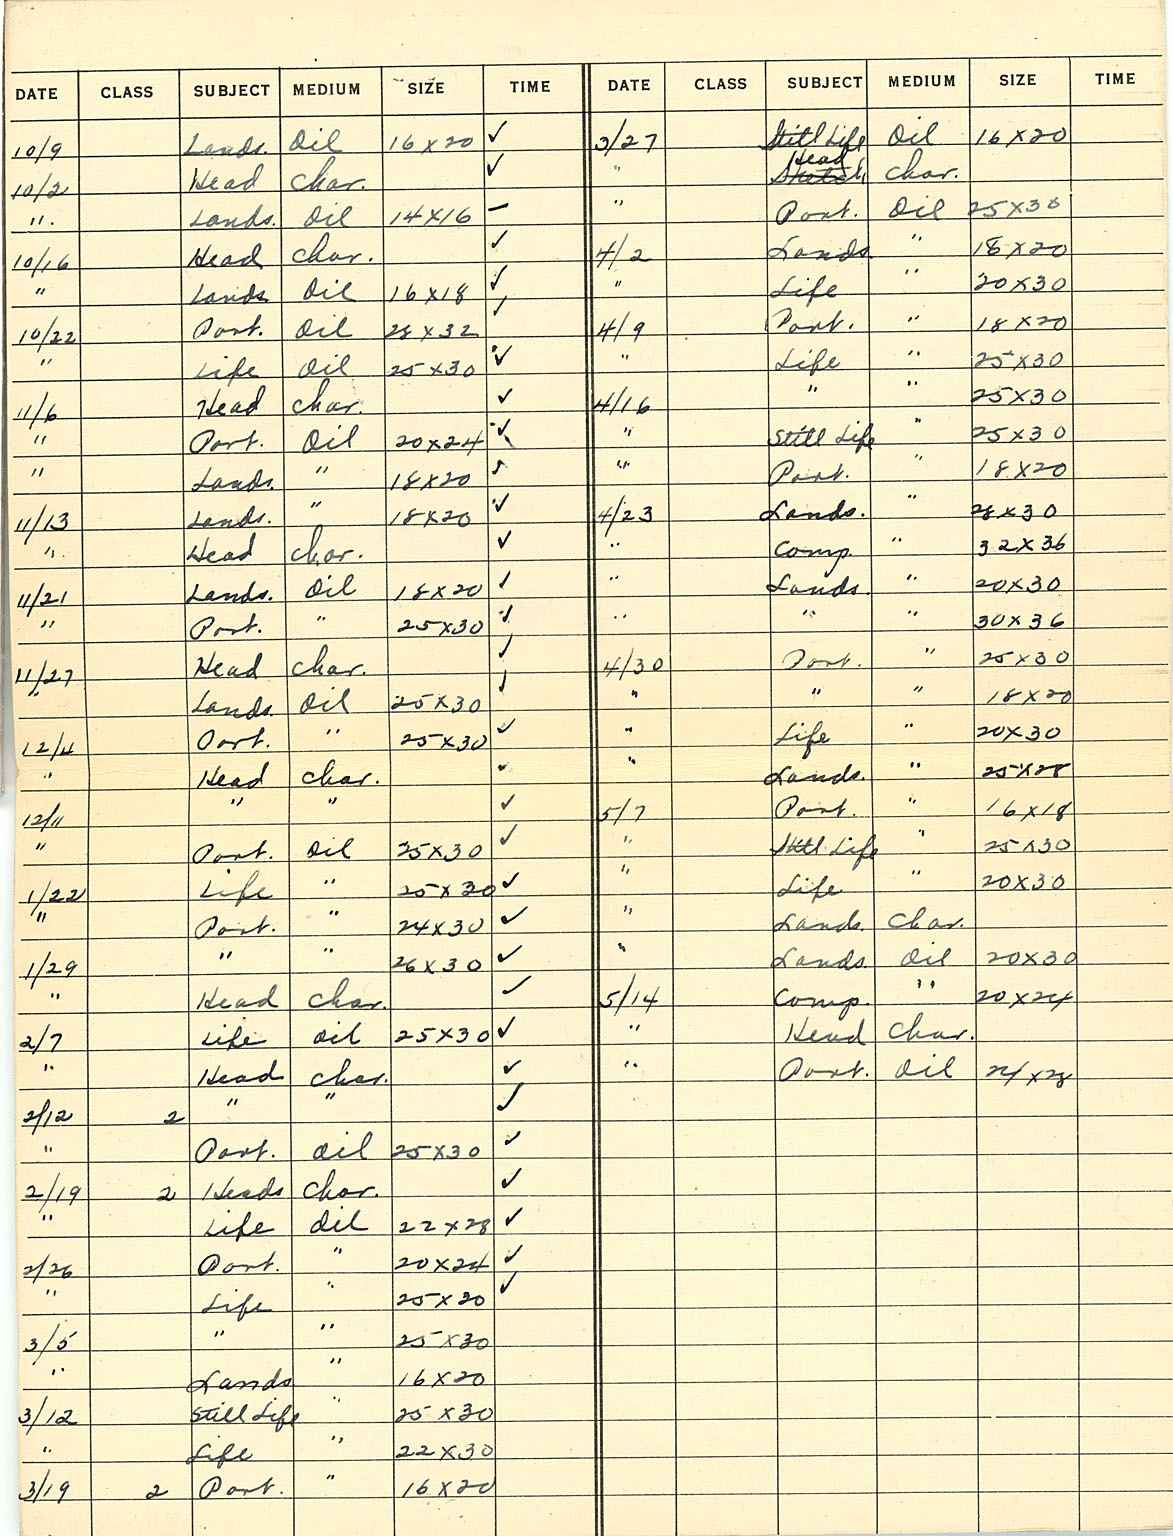 DATE CLASS SUBJECT MEDIUM SIZE TIME
10/9 Lands. Oil 16x20 ✓
10/2 Head Char. ✓
" Lands. Oil 14x16 –
10/16 Head Char. ✓
" Lands Oil 16x18 ✓
10/22 Port. Oil 28x32 ✓
" Life Oil 25x30 ✓
11/6 Head Char. ✓
" Port. Oil 20x24 ✓
" Lands. " 18x20 ✓
11/13 Lands. " 18x20 ✓
" Head Char. ✓
11/21 Lands. Oil 18x20 ✓
" Port. " 25x30 ✓
11/27 Head Char. ✓
" Lands. Oil 25x30 ✓
12/4 Port. " 25x30 ✓
" Head Char. ✓
12/11 " " ✓
" Port. Oil 25x30 ✓
1/22 Life " 25x30 ✓
" Port. " 24x30 ✓
1/29 " " 26x30 ✓
" Head Char. ✓
2/7 Life Oil 25x30 ✓
" Head Char. ✓
2/12 2 " " ✓
" Port. Oil 25x30 ✓
2/19 2 Heads Char. ✓
" Life Oil 22x28 ✓
2/26 Port. " 20x24 ✓
" Life " 25x30 ✓
3/5 " " 25x30
" Lands " 16x20
3/12 Still Life " 25x30
" Life " 22x30
3/19 2 Port. " 16x20
DATE CLASS SUBJECT MEDIUM SIZE TIME
3/27 Still Life Oil 16x20
" Head Sketch Char.
" Port. Oil 25x30
4/2 Lands. " 18x20
" Life " 20x30
4/9 Port. " 18x20
" Life " 25x30
4/16 " " 25x30
" Still Life " 25x30
" Port. " 18x20
4/23 Lands. " 28x30
" Comp. " 32x36
" Lands. " 20x30
" " " 30x36
4/30 Port. " 25x30
" " " 18x20
" Life " 20x30
" Lands. " 25x28
5/7 Port. " 16x18
" Still Life " 25x30
" Life " 20x30
" Lands. Char.
" Lands Oil 20x30
5/14 Comp. " 20x24
" Head Char.
" Port. Oil